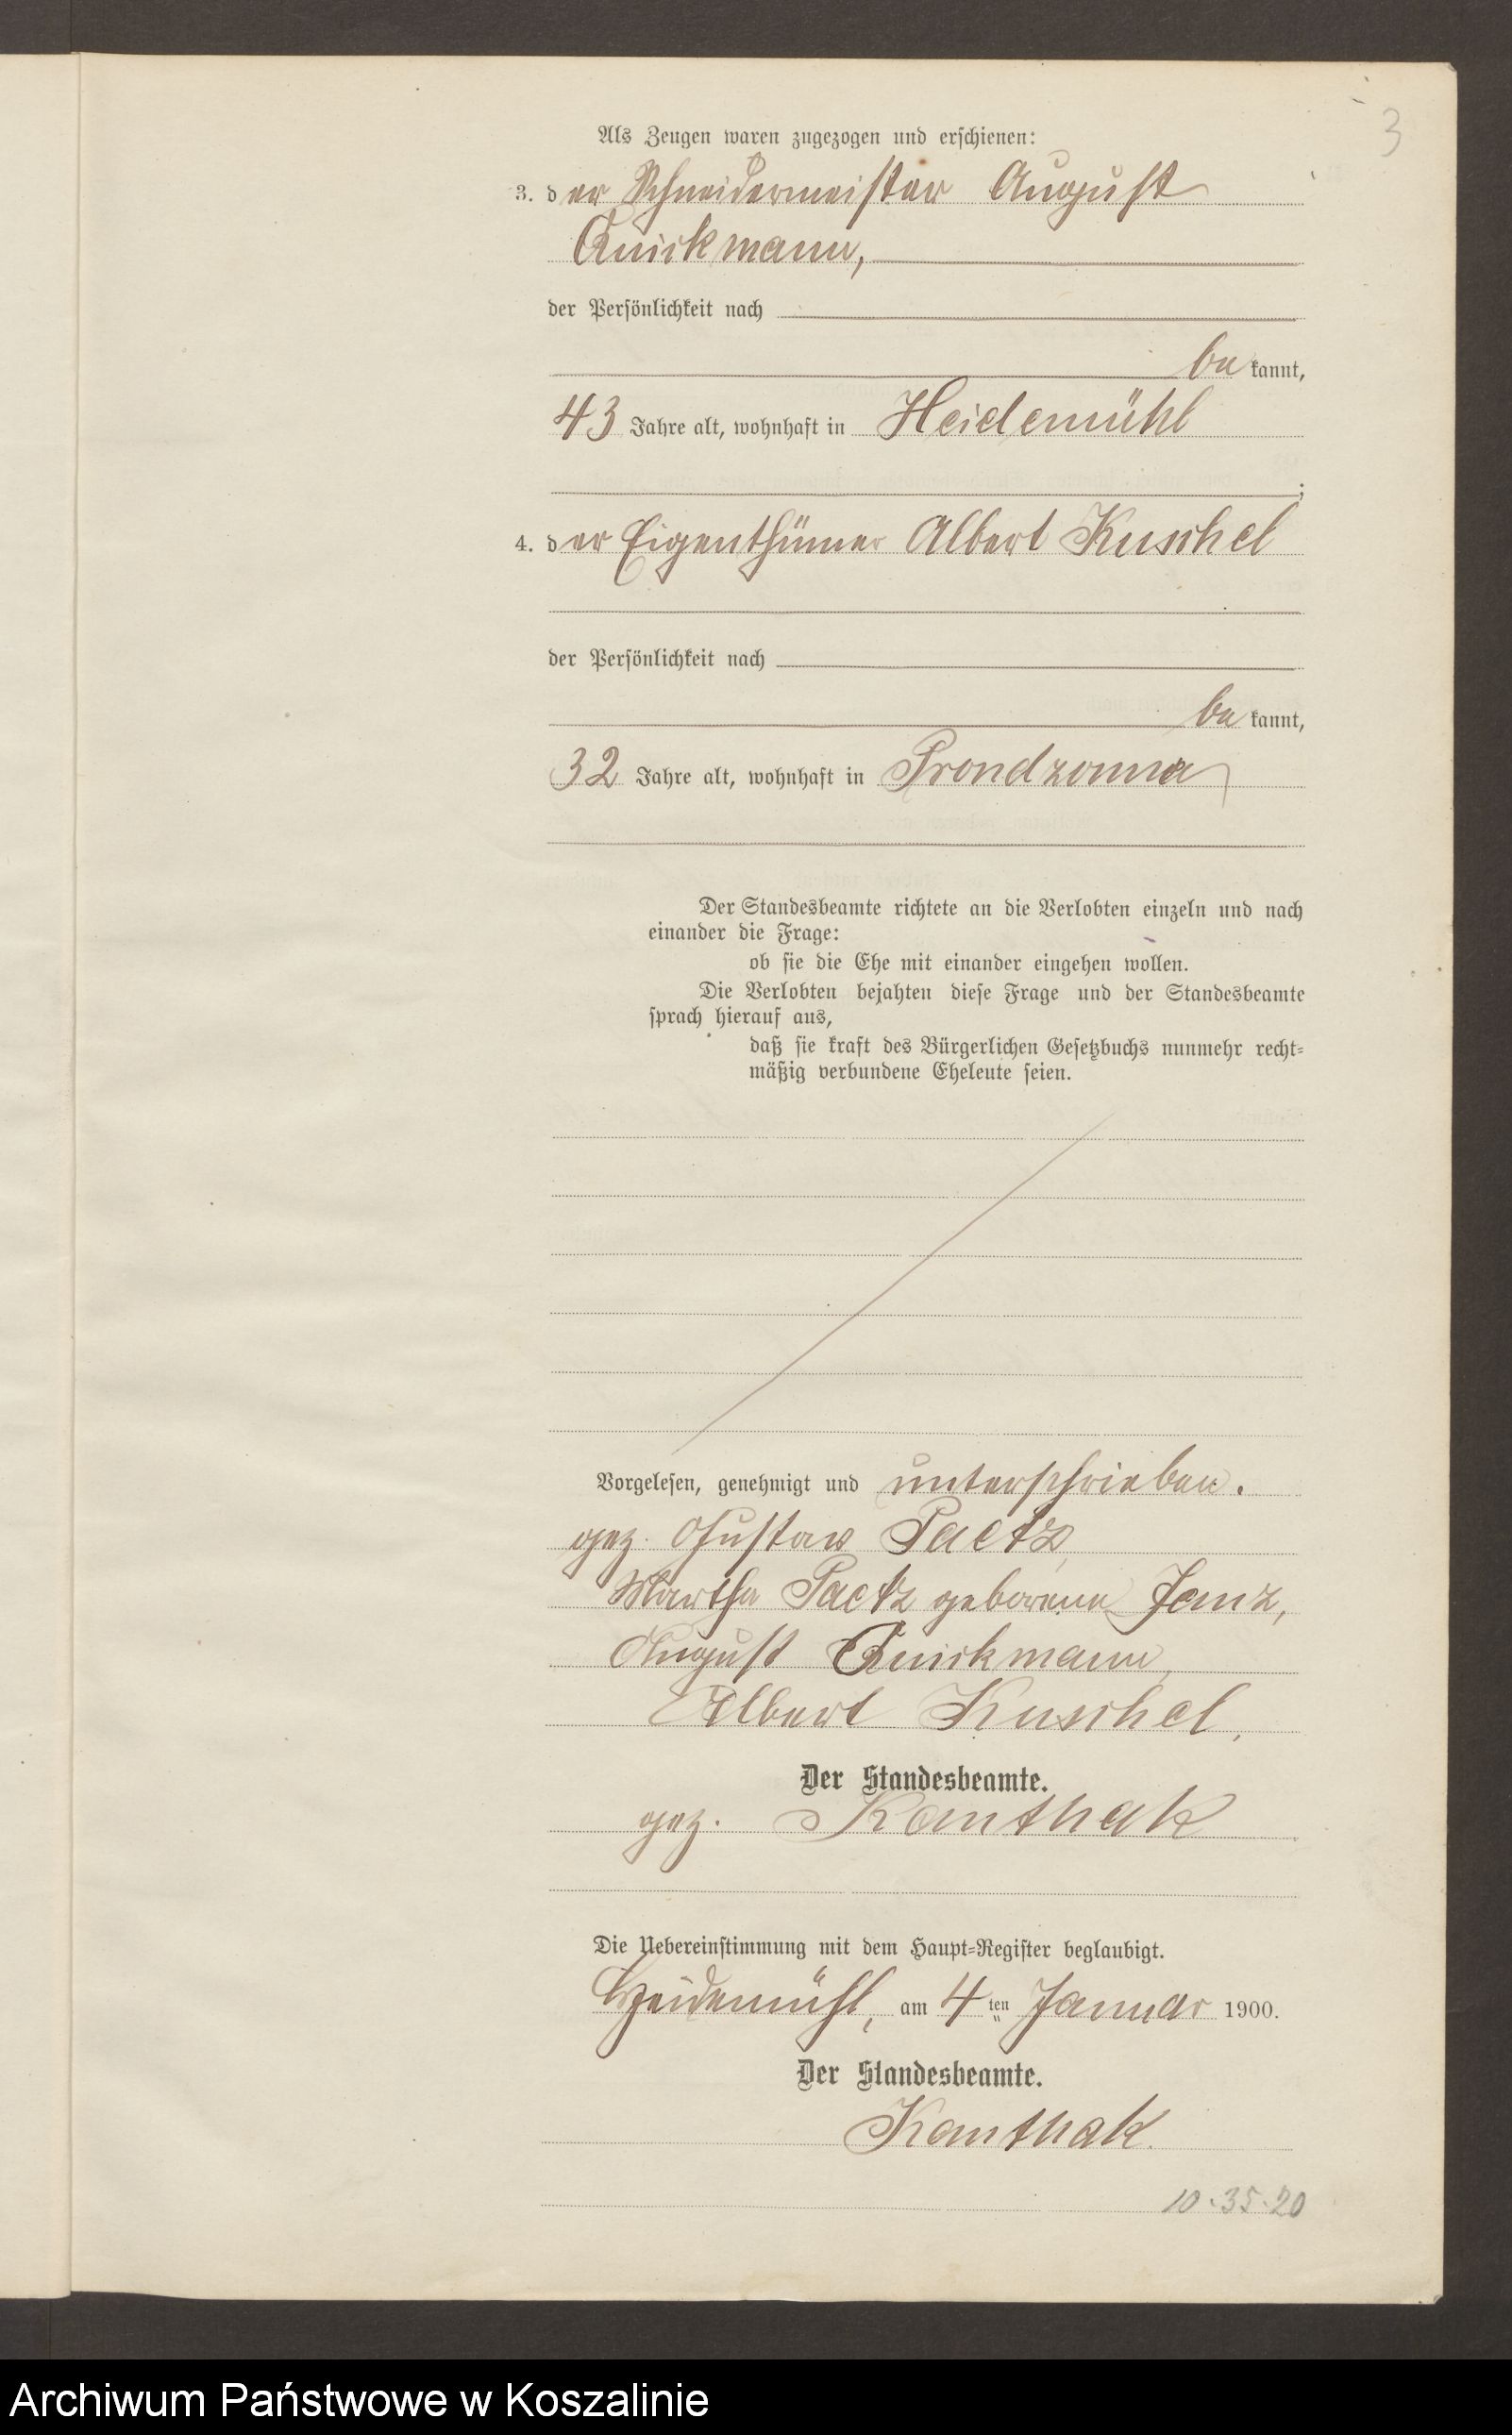 3
Als Zeugen waren zugezogen und erschienen:
3. der Schneidermeister August
Quickmann,
der Persönlichkeit nach
bekannt,
43 Jahre alt, wohnhaft in Heidemühl
;
4. der Eigenthümer Albert Kuschel
der Persönlichkeit nach
bekannt,
32 Jahre alt, wohnhaft in Prondzonna
Der Standesbeamte richtete an die Verlobten einzeln und nach
einander die Frage:
ob sie die Ehe mit einander eingehen wollen.
Die Verlobten bejahten diese Frage und der Standesbeamte
sprach hierauf aus,
daß sie kraft des Bürgerlichen Gesetzbuchs nunmehr recht-
mäßig verbundene Eheleute seien.
Vorgelesen, genehmigt und unterschrieben.
gez. Gustav Paetz,
Martha Paetz geborene Janz,
August Quickmann,
Albert Kuschel,
Der Standesbeamte.
gez. Kanthak
Die Uebereinstimmung mit dem Haupt-Register beglaubigt.
Heidemühl, am 4 ten Januar 1900.
Der Standesbeamte.
Kanthak.
10.35.20
Archiwum Państwowe w Koszalinie